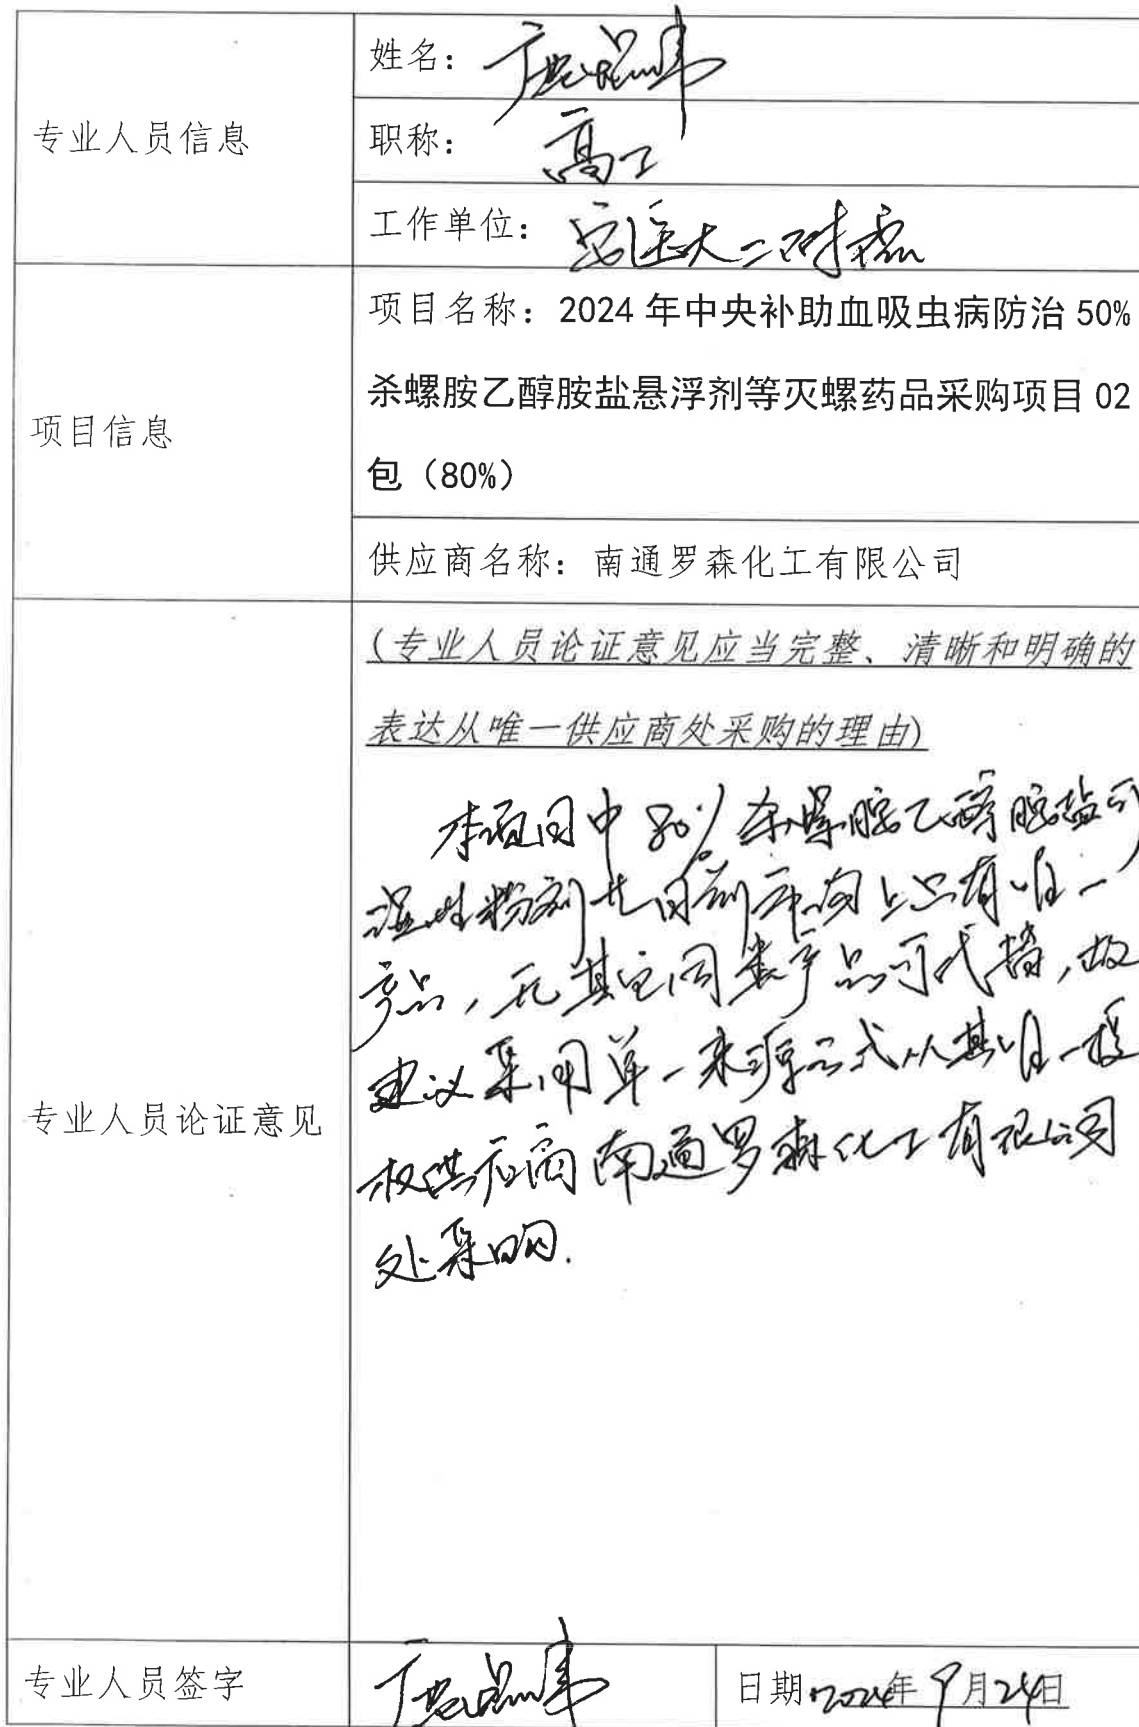 专业人员信息
姓名：
职称：高工
工作单位：安医大二附院
项目信息
项目名称：2024 年中央补助血吸虫病防治 50%
杀螺胺乙醇胺盐悬浮剂等灭螺药品采购项目 02
包（80%）
供应商名称：南通罗森化工有限公司
专业人员论证意见
（专业人员论证意见应当完整、清晰和明确的
表达从唯一供应商处采购的理由）
本项目中80%杀螺胺乙醇胺盐可
湿性粉剂在目前市场上只有唯一
产品，无其它同类产品可代替，故
建议采用单一来源方式从其唯一授
权供应商南通罗森化工有限公司
处采购.
专业人员签字
日期：2024年9月24日